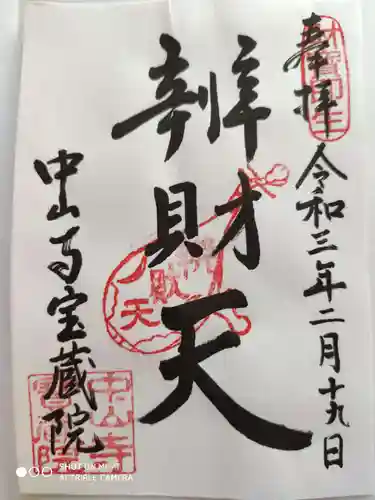 奉拝
令和三年二月十九日
辨財天
中山寺宝蔵院
弁財天
中山寺
寳蔵院
SHOT ON MI 9T
AI TRIPLE CAMERA